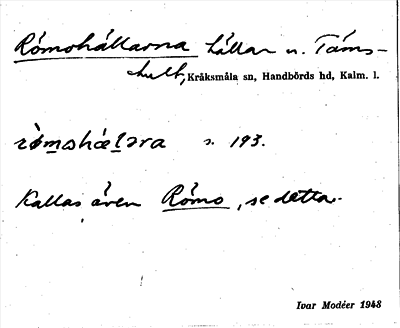 Römohällarna hällar n. Täms-
hult, Kråksmåla sn, Handbörds hd, Kalm. l.
s. 193.
Kallas även Römo, se detta.
Ivar Modéer 1948